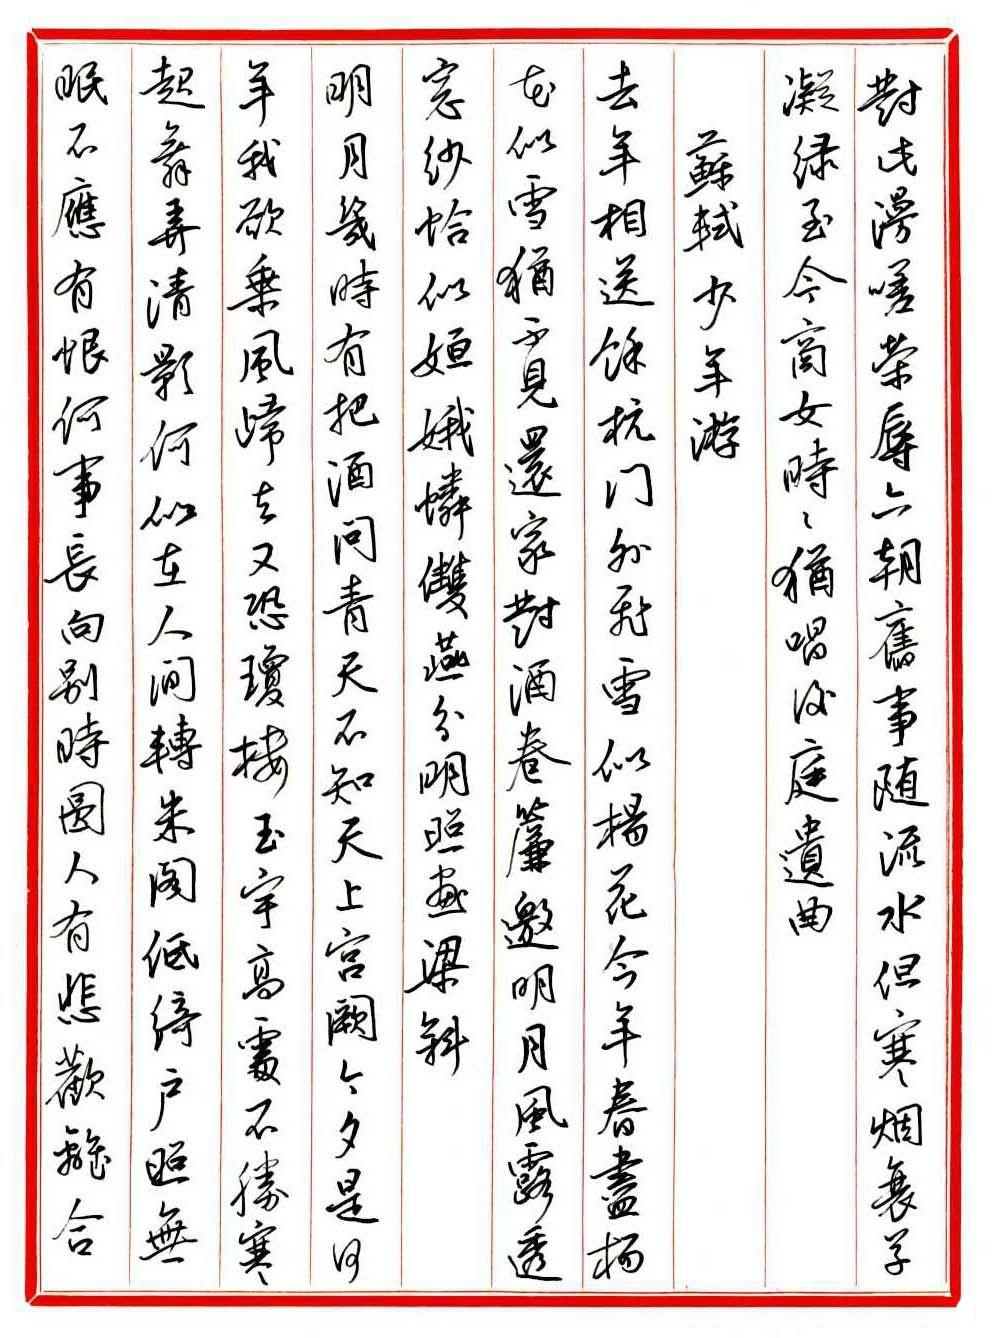 對此漫嗟榮辱六朝舊事随流水但寒烟衰草
凝绿至今商女時々猶唱後庭遺曲
蘇軾少年游
去年相送餘杭门外飛雪似楊花今年春盡楊
花似雪猶不見還家對酒卷簾邀明月風露透
窓紗恰似姮娥憐雙燕分明照画梁斜
明月幾時有把酒问青天不知天上宫阙今夕是何
年我欲乗風歸去又恐瓊楼玉宇高處不勝寒
起舞弄清影何似在人间轉朱阁低绮户照無
眠不應有恨何事長向别時圆人有悲歡離合